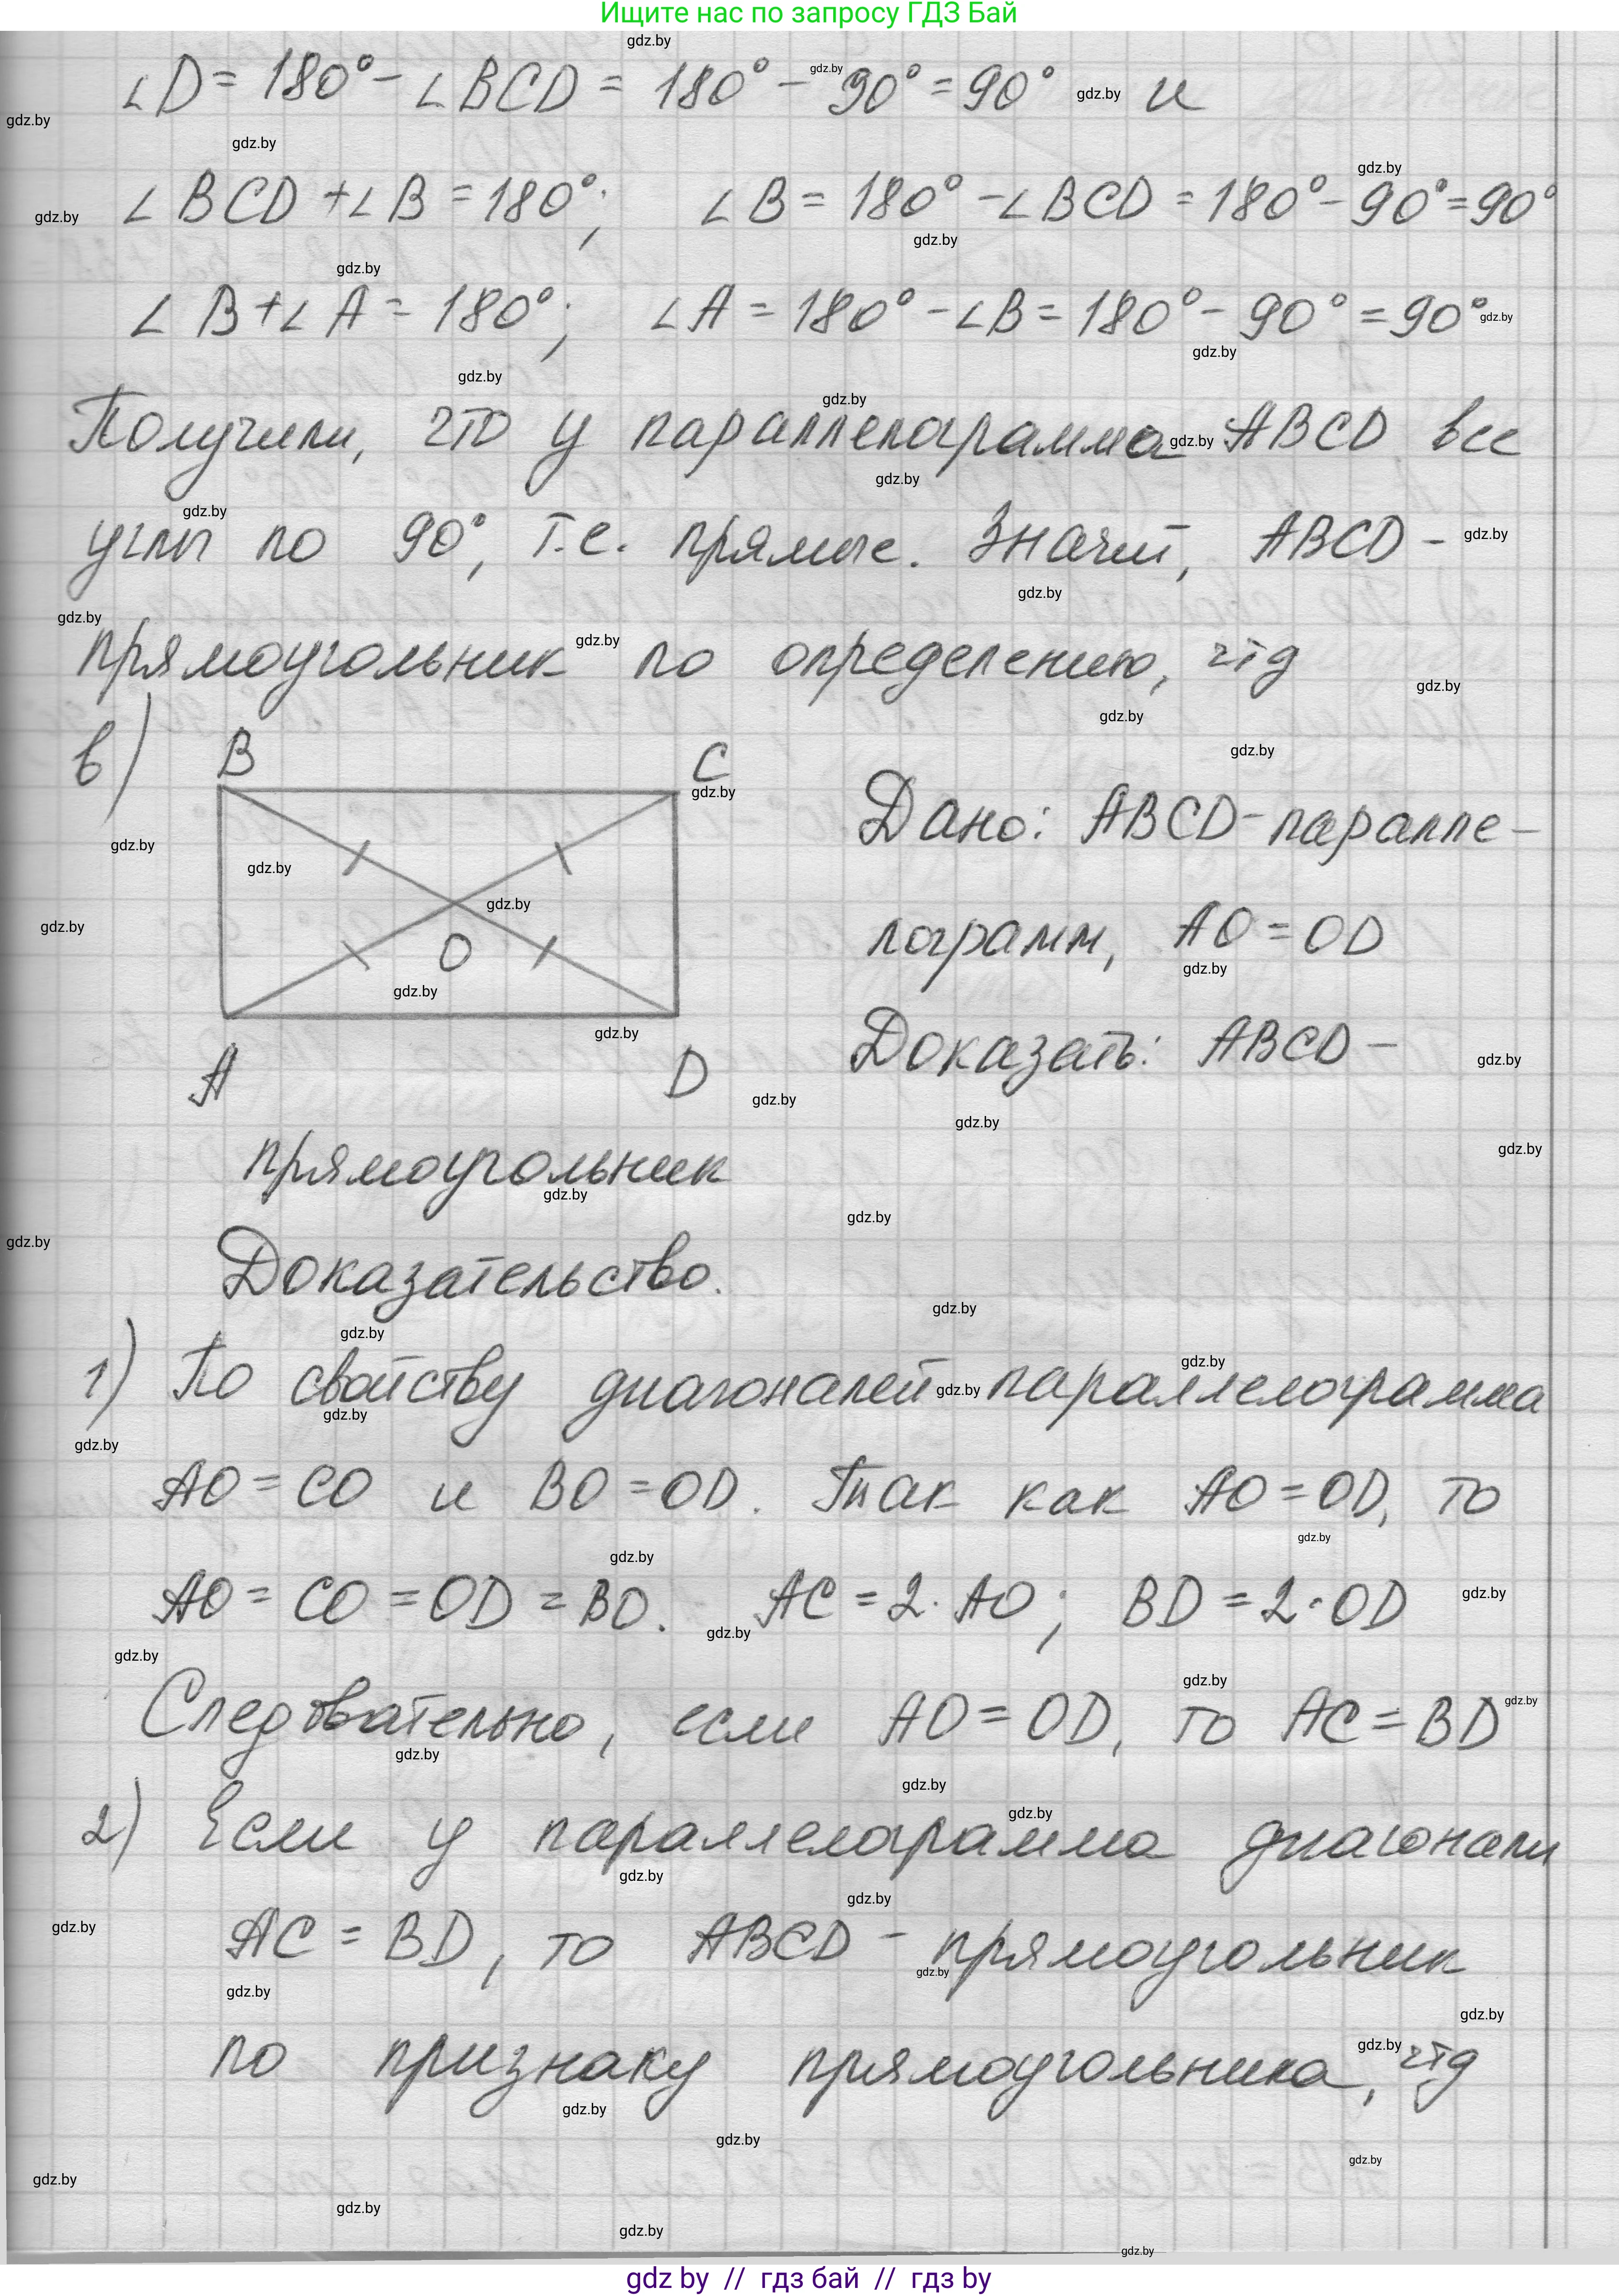 Ищите нас по запросу ГДЗ Бай
∠D = 180° - ∠BCD = 180° - 90° = 90° и
∠BCD + ∠B = 180°; ∠B = 180° - ∠BCD = 180° - 90° = 90°
∠B + ∠A = 180°; ∠A = 180° - ∠B = 180° - 90° = 90°
Получили, что у параллелограмма ABCD все
углы по 90°, т.е. прямые. Значит, ABCD -
прямоугольник по определению, чтд
в)
B
C
O
A
D
Дано: ABCD - паралле-
лограмм, AO = OD
Доказать: ABCD -
прямоугольник
Доказательство.
1) По свойству диагоналей параллелограмма
AO = CO и BO = OD. Так как AO = OD, то
AO = CO = OD = BO. AC = 2·AO; BD = 2·OD
Следовательно, если AO = OD, то AC = BD
2) Если у параллелограмма диагонали
AC = BD, то ABCD - прямоугольник
по признаку прямоугольника, чтд
gdz.by
gdz by // гдз бай // гдз by